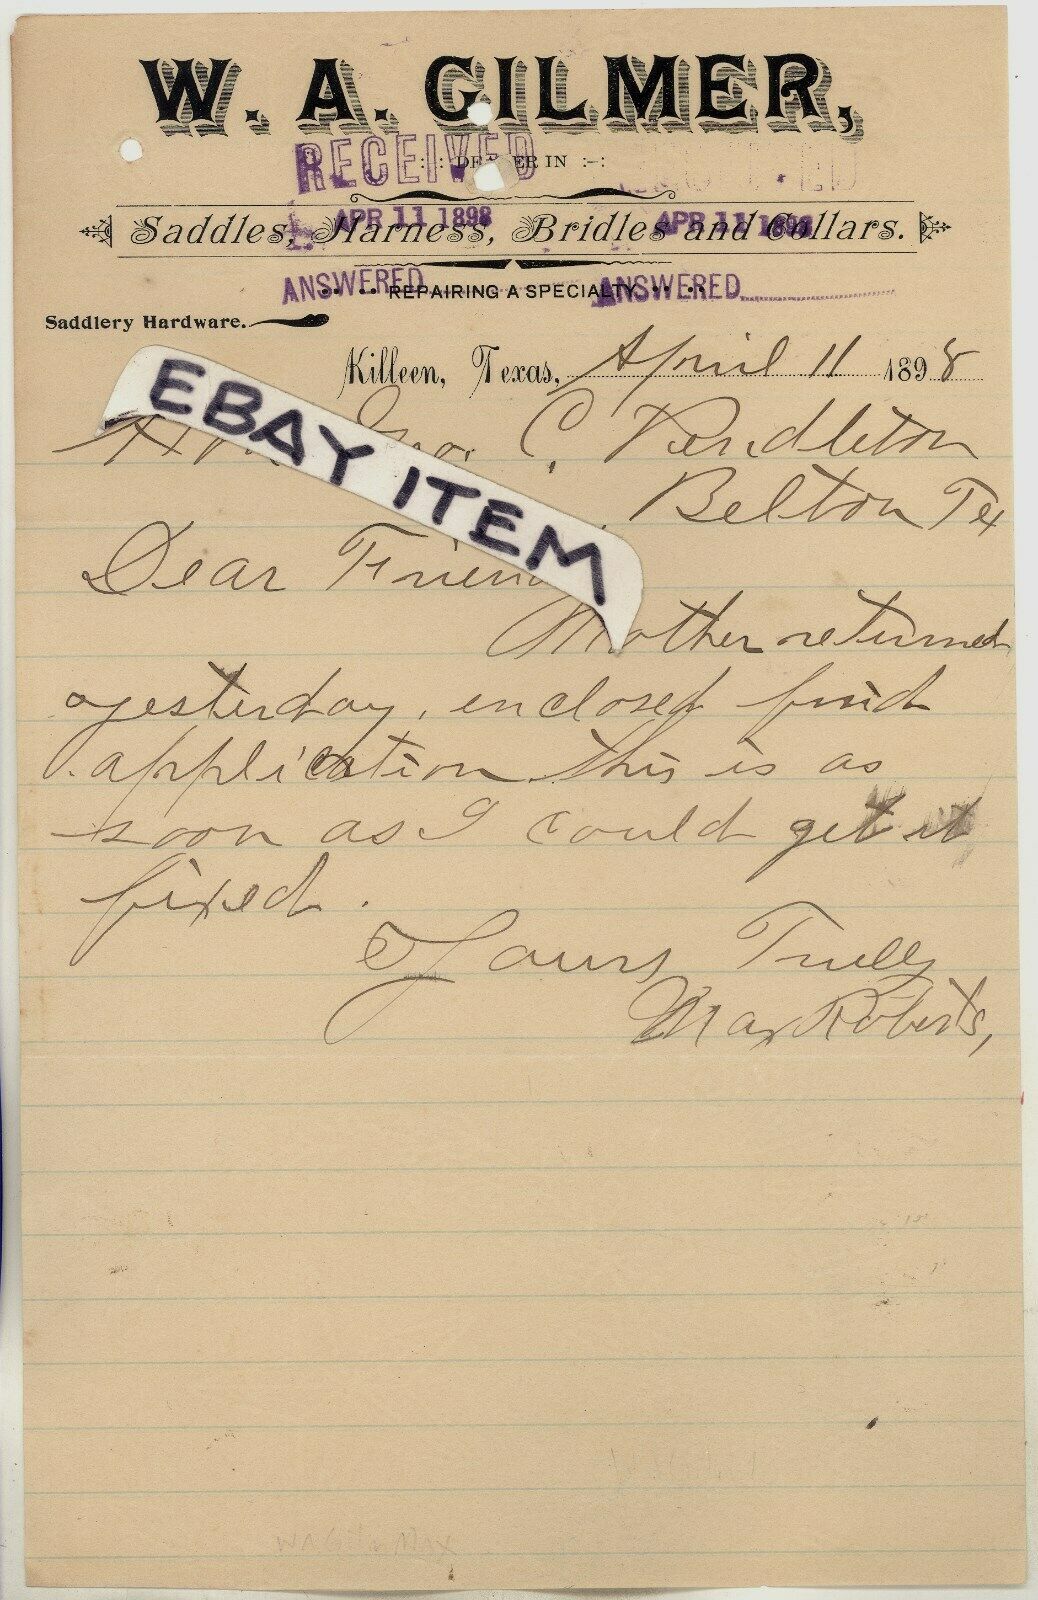 W. A. GILMER,
RECEIVED
DEALER IN
APR 11 1898
APR 11 1898
Saddles, Harness, Bridles and Collars.
ANSWERED
ANSWERED
REPAIRING A SPECIALTY
Saddlery Hardware.
Killeen, Texas, April 11 1898
EBAY ITEM
Geo. C. Pendleton
Belton Tex
Dear Friend
Mother returned
yesterday, enclosed find
application this is as
soon as I could get it
fixed.
Yours Truly
Max Roberts,